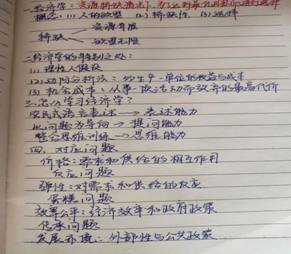 一、经济学:资源稀缺
概念:(1)人的欲望 (2)稀缺性 (3)选择
稀缺 资源有限
欲望无限
二、经济学的特别之处:
(1) 理性人假设
(2) 边际分析法:
(3) 机会成本:从事一项活动所放弃的最高代价
三、怎么学习经济学?
表述能力
以问题为导向 → 提问能力
训练 → 思维能力
四、对应问题
价格:需求和供给的相互作用
反应问题
弹性:对需求和供给的反应
蛋糕问题
效率公平:经济效率和政府政策
问题
发展环境:外部性与公共政策